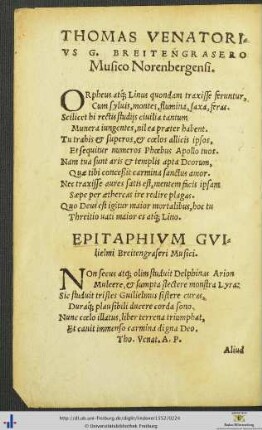 THOMAS VENATORI-
VS G. BREITENGRASERO
Musico Norenbergensi.
ORpheus atq; Linus quondam traxisse feruntur,
Cum syluis, montes, flumina, saxa, feras.
Scilicet hi rectis studijs ciuilia tantum
Munera iungentes, nil ea præter habent.
Tu trahis & superos, & cœlos allicis ipsos,
Et sequitur numeros Phœbus Apollo tuos.
Nam tua sunt aris & templis apta Deorum,
Quæ tibi concessit carmina sanctus amor.
Nec traxisse aures satis est, mentem facis ipsam
Sæpe per æthereas ire redire plagas.
Quo Deus est igitur maior mortalibus, hoc tu
Threitio vati maior es atq; Lino.
EPITAPHIVM GVI-
lielmi Breitengraseri Musici.
NOn secus atq; olim studuit Delphinas Arion
Mulcere, & sumpta flectere monstra Lyra:
Sic studuit tristes Guilielmus sistere curas,
Duraq; plausibili ducere corda sono.
Nunc cœlo illatus, liber terrena triumphat,
Et cauit immenso carmina digna Deo.
Tho. Venat. A. P.
Aliud
http://dl.ub.uni-freiburg.de/diglit/
© Universitätsbibliothek Freiburg